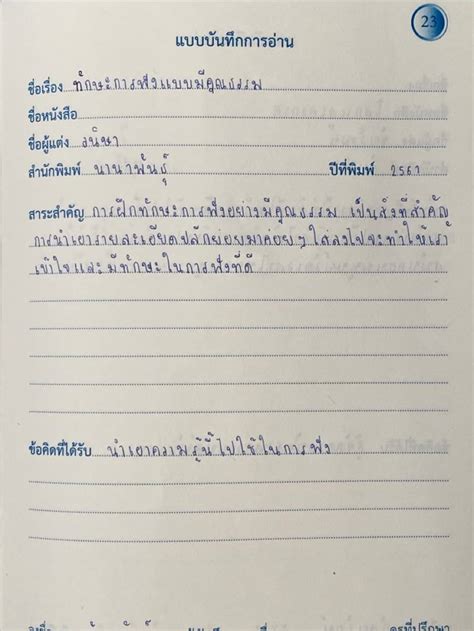 23
แบบบันทึกการอ่าน
ชื่อเรื่อง ทักษะการฟังแบบมีคุณธรรม
ชื่อหนังสือ
ชื่อผู้แต่ง วนิษา
สำนักพิมพ์ นานาพันธุ์ ปีที่พิมพ์ 2561
สาระสำคัญ การฝึกทักษะการฟังอย่างมีคุณธรรม เป็นสิ่งที่สำคัญ
การนำเอารายละเอียดปลีกย่อยมาค่อยๆ ใส่ลงไปจะทำให้เรา
เข้าใจและมีทักษะในการฟังที่ดี
ข้อคิดที่ได้รับ นำเอาความรู้นี้ไปใช้ในการฟัง
ครูที่ปรึกษา